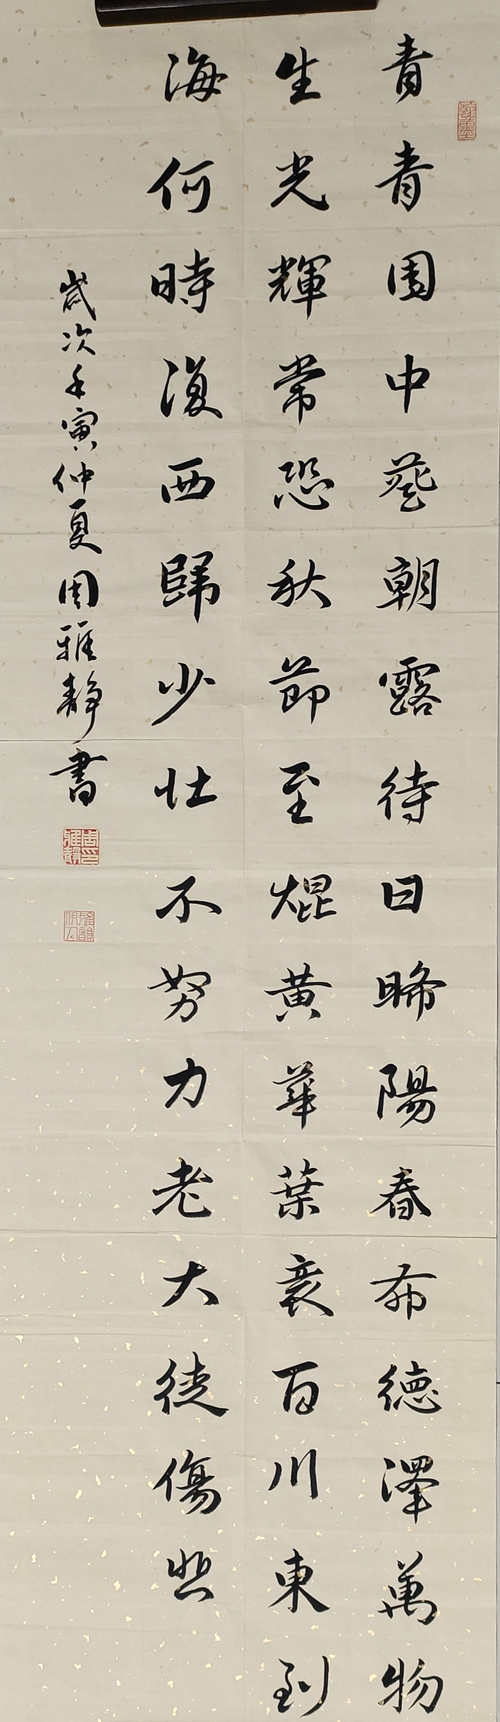 青青園中葵朝露待日晞陽春布德澤萬物
生光輝常恐秋節至焜黄華葉衰百川東到
海何時復西歸少壯不努力老大徒傷悲
歲次壬寅仲夏周雅靜書